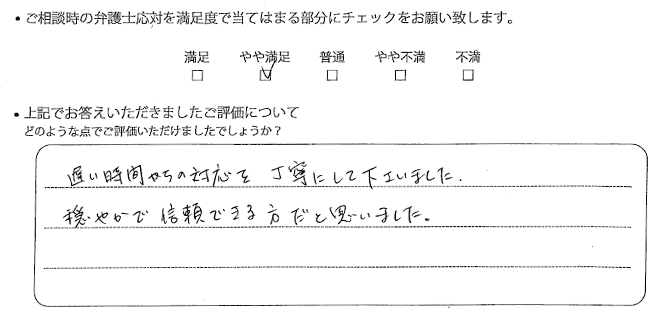 ・ご相談時の弁護士応対を満足度で当てはまる部分にチェックをお願い致します。
満足 やや満足 普通 やや不満 不満
□ ☑ □ □ □
・上記でお答えいただきましたご評価について
どのような点でご評価いただけましたでしょうか？
遅い時間からの対応を丁寧にして下さいました.
穏やかで信頼できる方だと思いました。